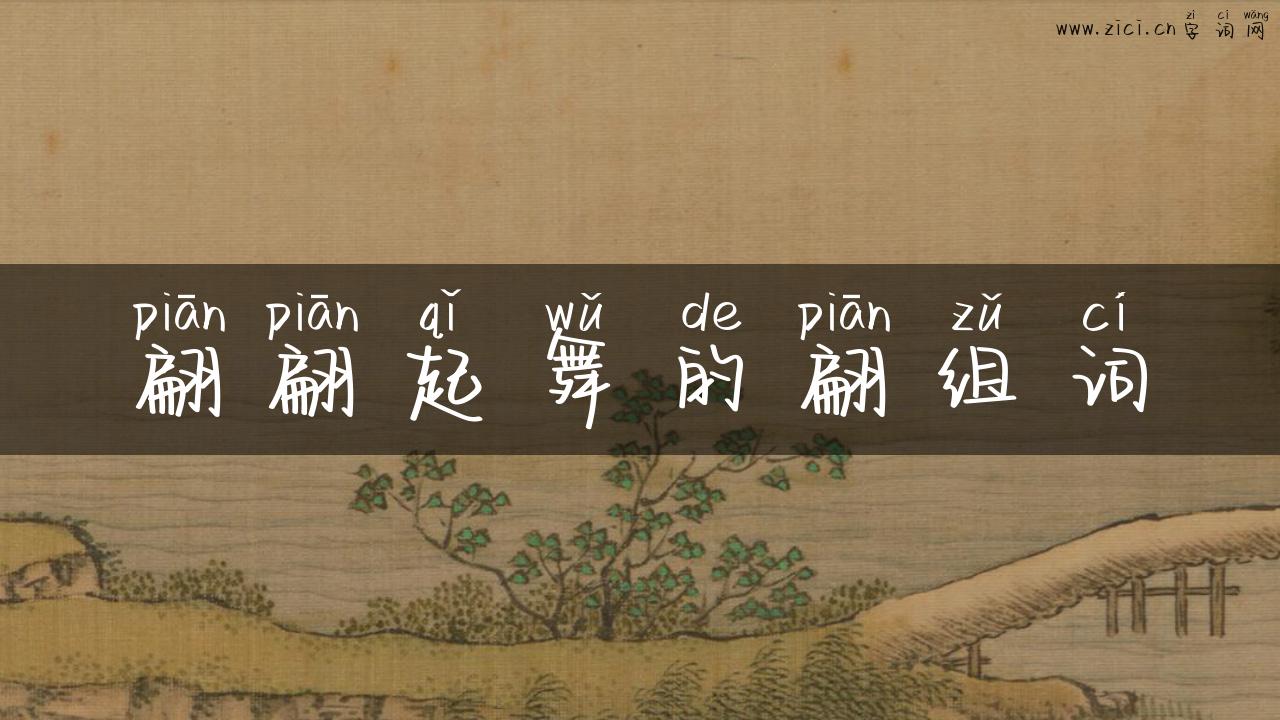 zì cí wǎng
www.zici.cn 字词网
piān piān qǐ wǔ de piān zǔ cí
翩翩起舞的翩组词